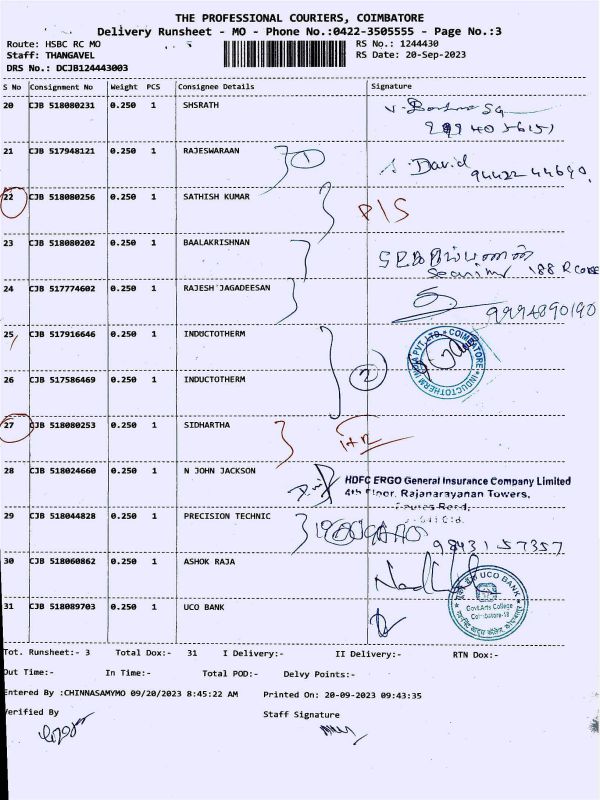 THE PROFESSIONAL COURIERS, COIMBATORE
Delivery Runsheet - MO - Phone No.:0422-3505555 - Page No.:3
Route: HSBC RC MO RS No.: 1244430
Staff: THANGAVEL RS Date: 20-Sep-2023
DRS No.: DCJB124443003
S No Consignment No Weight PCS Consignee Details Signature
20 CJB 518080231 0.250 1 SHSRATH
21 CJB 517948121 0.250 1 RAJESWARAAN 1 S. David 94422 44690.
22 CJB 518080256 0.250 1 SATHISH KUMAR P/S
23 CJB 518080202 0.250 1 BAALAKRISHNAN
24 CJB 517774602 0.250 1 RAJESH JAGADEESAN 9994890190
25 CJB 517916646 0.250 1 INDUCTOTHERM
INDUCTOTHERM INDIA PVT. LTD. COIMBATORE
26 CJB 517586469 0.250 1 INDUCTOTHERM 2
27 CJB 518080253 0.250 1 SIDHARTHA
28 CJB 518024660 0.250 1 N JOHN JACKSON HDFC ERGO General Insurance Company Limited
4th Floor, Rajanarayanan Towers,
29 CJB 518044828 0.250 1 PRECISION TECHNIC
98431 57357
30 CJB 518060862 0.250 1 ASHOK RAJA
UCO BANK
Govt.Arts College
Coimbatore-18
31 CJB 518089703 0.250 1 UCO BANK
Tot. Runsheet:- 3 Total Dox:- 31 I Delivery:- II Delivery:- RTN Dox:-
Out Time:- In Time:- Total POD:- Delvy Points:-
Entered By :CHINNASAMYMO 09/20/2023 8:45:22 AM Printed On: 20-09-2023 09:43:35
Verified By Staff Signature